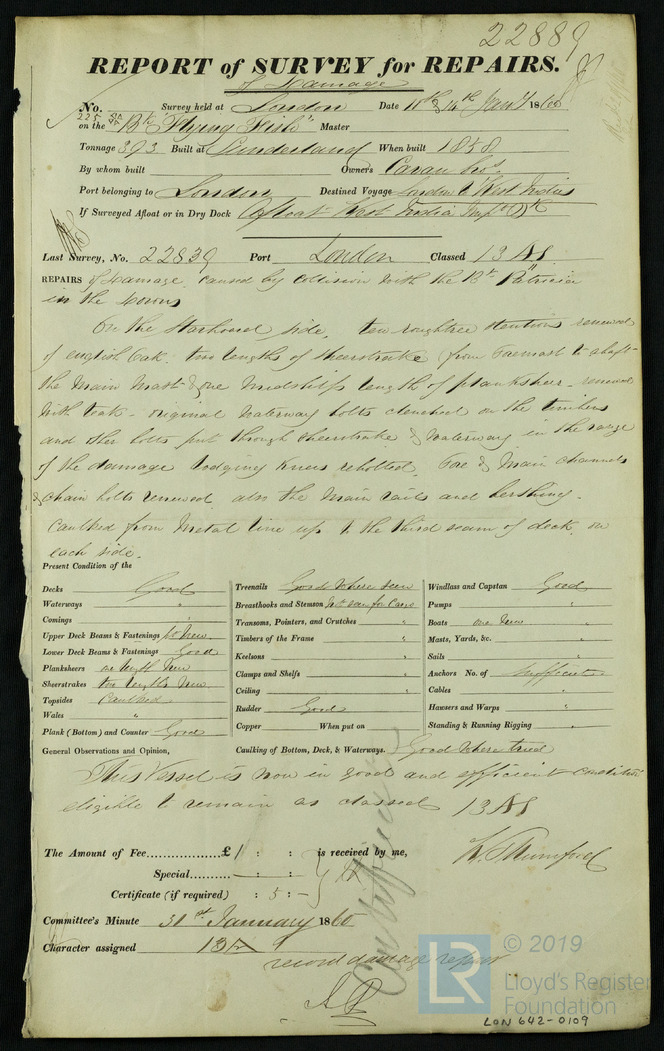 22889
REPORT of SURVEY for REPAIRS.
of Damage
No. 225 Survey held at London Date 10th & 14th Jany 1860
on the Bk "Flying Fish" Master
Tonnage 393 Built at Sunderland When built 1858
By whom built Owners
Port belonging to London Destined Voyage London to West Indies
If Surveyed Afloat or in Dry Dock Afloat East India Dk
Last Survey, No. 22839 Port London Classed 13 A1
REPAIRS of Damage, caused by collision with the Bk "Patricia"
in the Downs
On the Starboard side, ten roughtree stentions renewed
of english Oak. two lengths of sheerstrake from Foremast to abaft
the Main Mast & one Midships length of planksheer - renewed
with teak - original waterway bolts clenched on the timbers
and other bolts put through sheerstrake & waterway in the range
of the damage lodging knees rebolted. Fore & Main channels
& chain bolts renewed also the Main rails and berthing.
Caulked from Metal line up to the third seam of deck, on
each side.
Present Condition of the
Decks Good
Waterways "
Comings "
Upper Deck Beams & Fastenings
Lower Deck Beams & Fastenings Good
Planksheers one length New
Sheerstrakes two lengths New
Topsides Caulked
Wales "
Plank (Bottom) and Counter Good
Treenails Good where seen
Breasthooks and Stemson
Transoms, Pointers, and Crutches "
Timbers of the Frame "
Keelsons "
Clamps and Shelfs "
Ceiling "
Rudder Good
Copper When put on
Windlass and Capstan Good
Pumps "
Boats one New
Masts, Yards, &c. "
Sails "
Anchors No. of Sufficient
Cables "
Hawsers and Warps "
Standing & Running Rigging "
General Observations and Opinion, Caulking of Bottom, Deck, & Waterways. Good where tried
This Vessel is now in good and efficient condition
eligible to remain as classed 13 A1
The Amount of Fee................£1 : : is received by me,
Special......... : : -
Certificate (if required) : 5 : -
Committee's Minute 31st January 1860
Character assigned 13A
record damage repair
© 2019
LR Lloyd's Register
Foundation
LON 642-0109